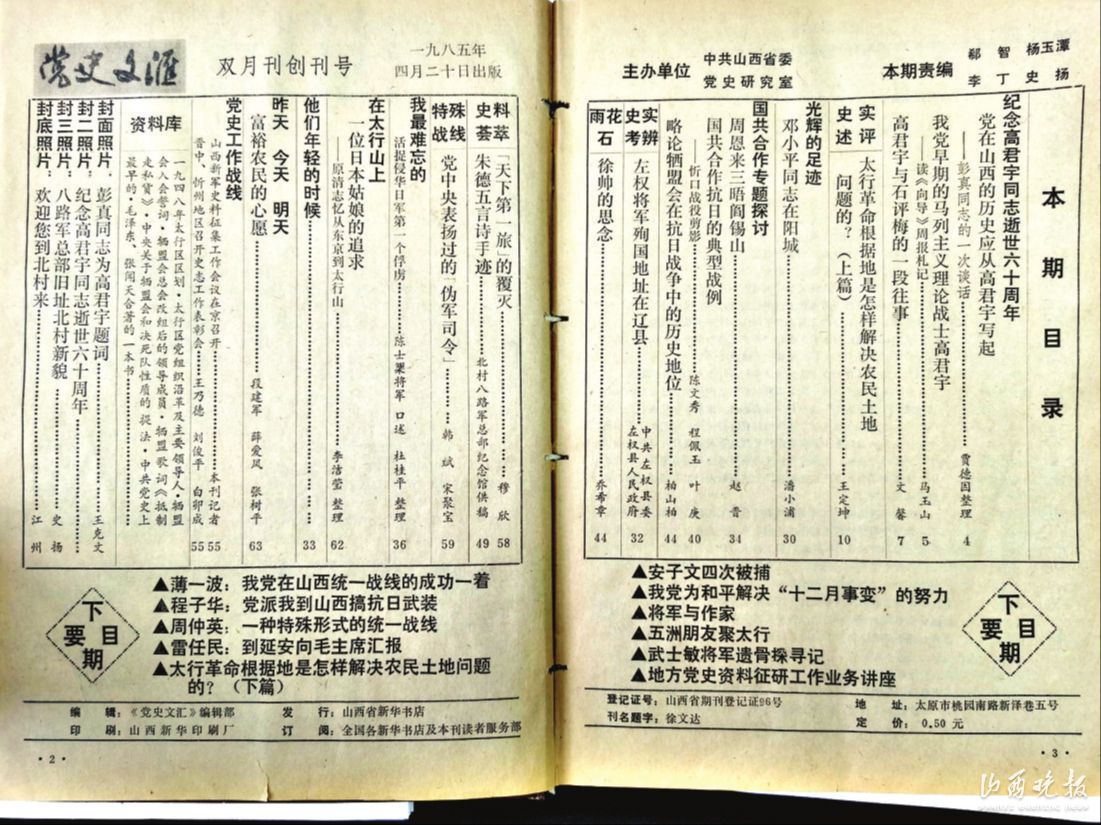 党史文汇
双月刊创刊号
一九八五年
四月二十日出版
主办单位
中共山西省委
党史研究室
本期责编
郗智 杨玉潭
李丁 史扬
本期目录
纪念高君宇同志逝世六十周年
党在山西的历史应从高君宇写起
——彭真同志的一次谈话……贾德因整理 4
我党早期的马列主义理论战士高君宇
——读《向导》周报札记……马玉山 5
高君宇与石评梅的一段往事……文馨 7
史实
述评
太行革命根据地是怎样解决农民土地
问题的?(上篇)……王定坤 10
光辉的足迹
邓小平同志在阳城……潘小浦 30
国共合作专题探讨
周恩来三晤阎锡山……赵晋 34
国共合作抗日的典型战例
——忻口战役剪影……陈文秀 程佩玉 叶庚 40
略论牺盟会在抗日战争中的历史地位……柏山柏 44
史实
考辨
左权将军殉国地址在辽县……中共左权县委
左权县人民政府 32
雨花
石
徐帅的思念……乔希章 44
史料
荟萃
「天下第一旅」的覆灭……穆欣 58
朱德五言诗手迹……北村八路军总部纪念馆供稿 49
特殊
战线
党中央表扬过的「伪军司令」……韩斌 宋聚宝 59
我最难忘的
活捉侵华日军第一个俘虏……陈士榘将军 口述 杜桂平 整理 36
在太行山上
一位日本姑娘的追求
原清志忆从东京到太行山……李洁莹 整理 62
他们年轻的时候…… 33
昨天 今天 明天
富裕农民的心愿……段建军 薛爱风 张树平 63
党史工作战线
山西新军史料征集工作会议在京召开……本刊记者 55
晋中、忻州地区召开史志工作表彰会……王乃德 刘俊平 白卯成 55
资料库
一九四八年太行区区划·太行区党组织沿革及主要领导人·牺盟
会入会誓词·牺盟会总会改组后的领导成员·牺盟歌词《抵制
走私货》·中央关于牺盟会和决死队性质的提法·中共党史上
最早的·毛泽东、张闻天合著的一本书
封面照片,彭真同志为高君宇题词……王克文
封二照片,纪念高君宇同志逝世六十周年
封三照片,八路军总部旧址北村新貌……史扬
封底照片,欢迎您到北村来……江州
下期要目
▲薄一波:我党在山西统一战线的成功一着
▲程子华:党派我到山西搞抗日武装
▲周仲英:一种特殊形式的统一战线
▲雷任民:到延安向毛主席汇报
▲太行革命根据地是怎样解决农民土地问题
的?(下篇)
下期要目
▲安子文四次被捕
▲我党为和平解决“十二月事变”的努力
▲将军与作家
▲五洲朋友聚太行
▲武士敏将军遗骨探寻记
▲地方党史资料征研工作业务讲座
编辑:《党史文汇》编辑部 发行:山西省新华书店
印刷:山西新华印刷厂 订阅:全国各新华书店及本刊读者服务部
登记证号:山西省期刊登记证96号 地址:太原市桃园南路新泽巷五号
刊名题字:徐文达 定价:0.50元
·2·
·3·
山西晚报